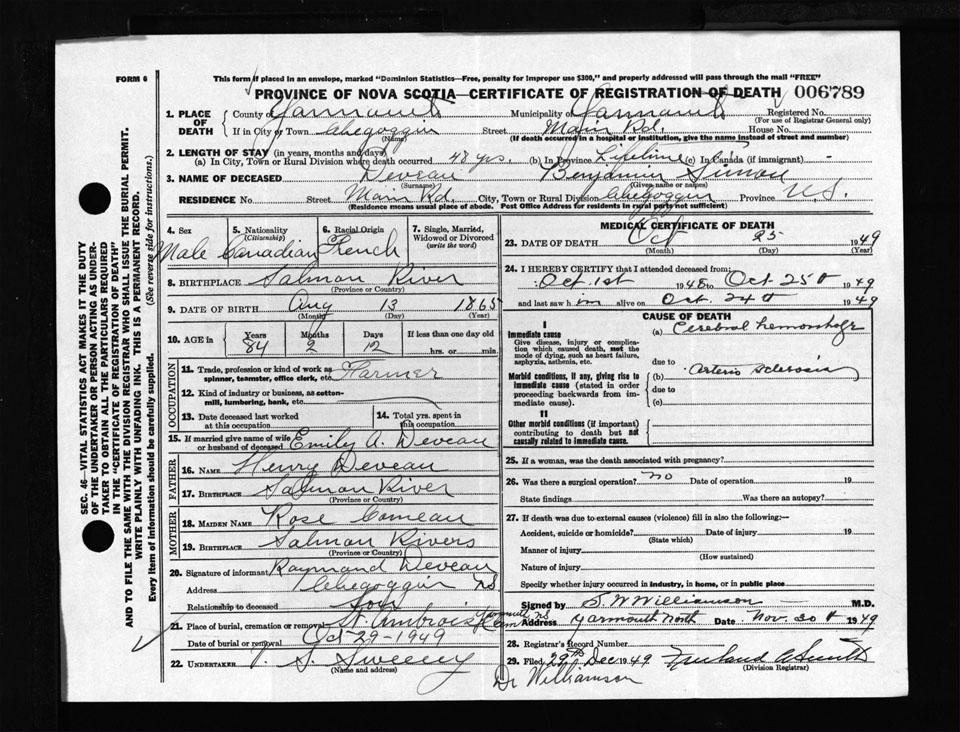 FORM 6
This form if placed in an envelope, marked "Dominion Statistics—Free, penalty for improper use $300," and properly addressed will pass through the mail "FREE"
PROVINCE OF NOVA SCOTIA—CERTIFICATE OF REGISTRATION OF DEATH 006789
1. PLACE OF DEATH
County of Yarmouth Municipality of Yarmouth Registered No.
(For use of Registrar General only)
If in City or Town Chegoggin Street Main Rd. House No.
(Name) (If death occurred in a hospital or institution, give the name instead of street and number)
2. LENGTH OF STAY (in years, months and days)
(a) In City, Town or Rural Division where death occurred 48 yrs. (b) In Province Lifetime (c) In Canada (if immigrant) -
3. NAME OF DECEASED Deveau Benjamin Simon
(Surname) (Given name or names)
RESIDENCE No. Street Main Rd. City, Town or Rural Division Chegoggin Province N.S.
(Residence means usual place of abode. Post Office Address for residents in rural parts not sufficient)
4. Sex Male
5. Nationality (Citizenship) Canadian
6. Racial Origin French
7. Single, Married, Widowed or Divorced (write the word)
8. BIRTHPLACE Salmon River
(Province or Country)
9. DATE OF BIRTH Aug 13 1865
(Month) (Day) (Year)
10. AGE in Years Months Days If less than one day old
84 2 12 hrs. or min.
OCCUPATION
11. Trade, profession or kind of work as spinner, teamster, office clerk, etc. Farmer
12. Kind of industry or business, as cotton-mill, lumbering, bank, etc.
13. Date deceased last worked at this occupation
14. Total yrs. spent in this occupation
15. If married give name of wife or husband of deceased Emily A. Deveau
FATHER
16. NAME Henry Deveau
17. BIRTHPLACE Salmon River
(Province or Country)
MOTHER
18. MAIDEN NAME Rose Comeau
19. BIRTHPLACE Salmon Rivers
(Province or Country)
20. Signature of informant Raymond Deveau
Address Chegoggin NS
Relationship to deceased Son
21. Place of burial, cremation or removal St. Ambrois
Date of burial or removal Oct-29-1949
22. UNDERTAKER V. S. Sweeny
(Name and address)
MEDICAL CERTIFICATE OF DEATH
23. DATE OF DEATH Oct 25 1949
(Month) (Day) (Year)
24. I HEREBY CERTIFY that I attended deceased from:
Oct. 1st 1948 to Oct. 25th 1949
and last saw him alive on Oct. 24th 1949
CAUSE OF DEATH
I
Immediate cause
Give disease, injury or complication which caused death, not the mode of dying, such as heart failure, asphyxia, asthenia, etc.
(a) Cerebral hemorrhage
due to
Morbid conditions, if any, giving rise to immediate cause (stated in order proceeding backwards from immediate cause).
(b) Arterio Sclerosis
due to
(c)
II
Other morbid conditions (if important) contributing to death but not causally related to immediate cause.
25. If a woman, was the death associated with pregnancy?
26. Was there a surgical operation? no Date of operation 19
State findings Was there an autopsy?
27. If death was due to external causes (violence) fill in also the following:—
Accident, suicide or homicide? Date of injury 19
(State which)
Manner of injury
(How sustained)
Nature of injury
Specify whether injury occurred in industry, in home, or in public place
Signed by S. W Williamson M.D.
Address Yarmouth North Date Nov. 30th 1949
28. Registrar's Record Number
29. Filed 29th Dec 1949
(Division Registrar)
Dr Williamson
SEC. 46—VITAL STATISTICS ACT MAKES IT THE DUTY
OF THE UNDERTAKER OR PERSON ACTING AS UNDER-
TAKER TO OBTAIN ALL THE PARTICULARS REQUIRED
IN THE "CERTIFICATE OF REGISTRATION OF DEATH"
AND TO FILE THE SAME WITH THE DIVISION REGISTRAR WHO SHALL ISSUE THE BURIAL PERMIT.
WRITE PLAINLY WITH UNFADING INK. THIS IS A PERMANENT RECORD.
Every item of information should be carefully supplied. (See reverse side for instructions.)